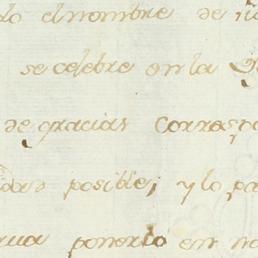 do el nombre de
se celebre en la
de gracias Corresp
posible; y lo pa
ponerlo en no